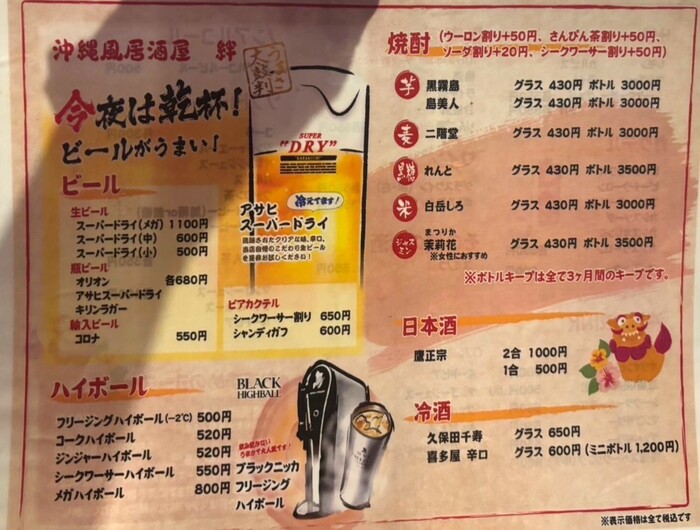 沖縄風居酒屋 絆
今夜は乾杯!
ビールがうまい!
SUPER
"DRY"
冷えてます!
アサヒ
スーパードライ
洗練されたクリアな味、辛口。
ビール
生ビール
スーパードライ(メガ) 1100円
スーパードライ(中) 600円
スーパードライ(小) 500円
瓶ビール
オリオン 各680円
アサヒスーパードライ
キリンラガー
輸入ビール
コロナ 550円
ビアカクテル
シークワーサー割り 650円
シャンディガフ 600円
ハイボール
フリージングハイボール(−2℃) 500円
コークハイボール 520円
ジンジャーハイボール 520円
シークワーサーハイボール 550円
メガハイボール 800円
BLACK
HIGHBALL
ブラックニッカ
フリージング
ハイボール
焼酎 (ウーロン割り+50円、さんぴん茶割り+50円、
ソーダ割り+20円、シークワーサー割り+50円)
芋 黒霧島 グラス 430円 ボトル 3000円
島美人 グラス 430円 ボトル 3000円
麦 二階堂 グラス 430円 ボトル 3000円
黒糖 れんと グラス 430円 ボトル 3500円
米 白岳しろ グラス 430円 ボトル 3000円
まつりか
ジャスミン 茉莉花 グラス 430円 ボトル 3500円
※女性におすすめ
※ボトルキープは全て3ヶ月間のキープです。
日本酒
鷹正宗 2合 1000円
1合 500円
冷酒
久保田千寿 グラス 650円
喜多屋 辛口 グラス 600円 (ミニボトル 1,200円)
※表示価格は全て税込です